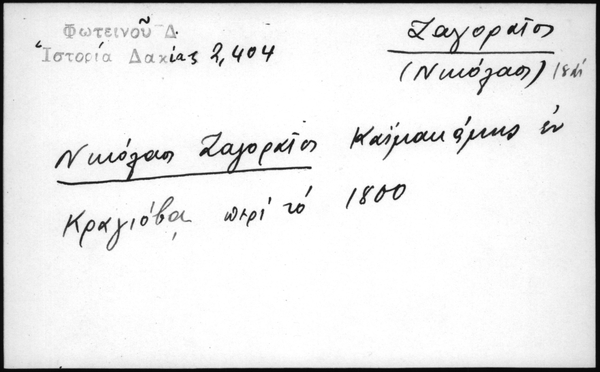 Φωτεινοῦ Δ.
Ἱστορία Δακίας 2,404
Ζαγοραῖος
(Νικόλαος)
Νικόλαος Ζαγοραῖος Καϊμακάμης ἐν
Κραγιόβα, περί τό 1800